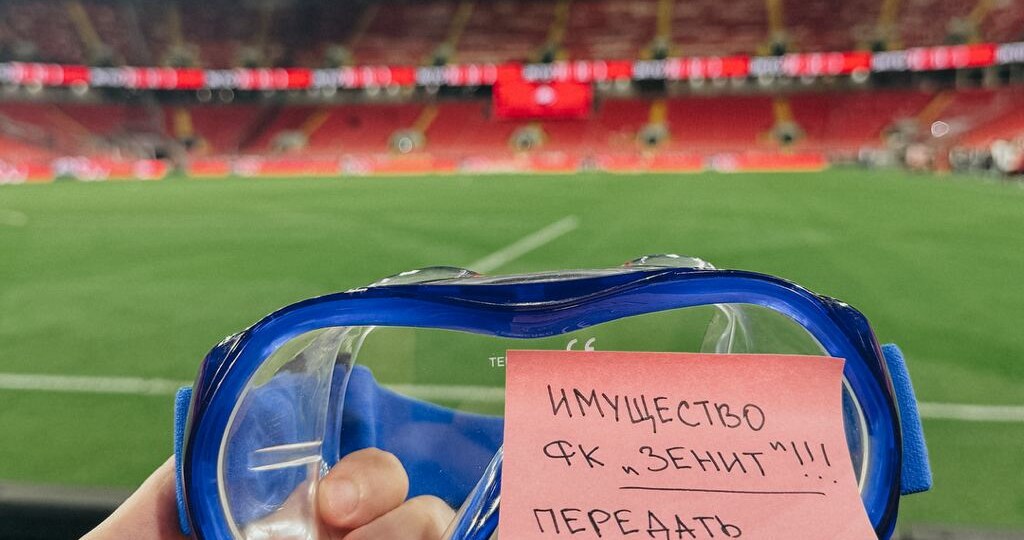 ИМУЩЕСТВО
ФК „ЗЕНИТ"!!!
ПЕРЕДАТЬ